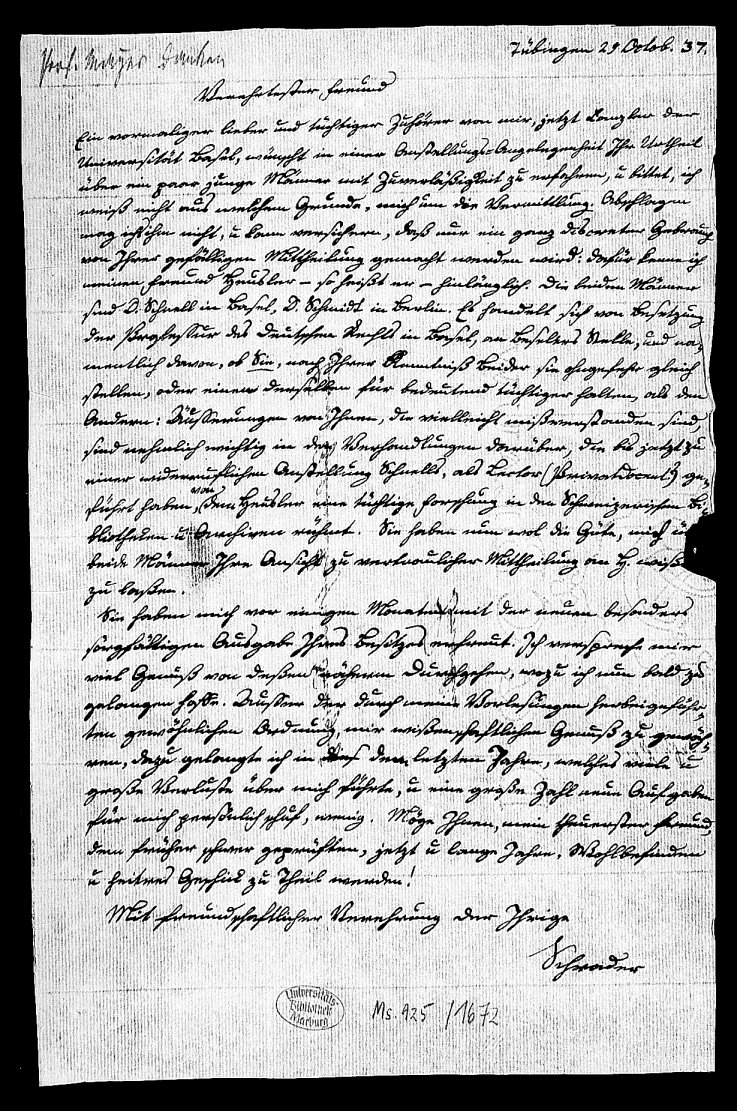 Prof. Danken
Tübingen 29 Octob. 37.
Verehrtester Freund
Ein vormaliger lieber und tüchtiger Zuhörer von mir, jetzt Canzler der
Universität Basel, wünscht in einer Anstellungs-Angelegenheit Ihr Urtheil
über ein paar junge Männer mit Zuverläßigkeit zu erfahren, u bittet, ich
weiß nicht aus welchem Grunde, mich um die Vermittlung. Abschlagen
mag ichs ihm nicht, u kann versichern, daß nur ein ganz discreter Gebrauch
von Ihrer gefälligen Mittheilung gemacht werden wird: dafür kenne ich
meinen Freund Heusler – so heißt er – hinlänglich. Die beiden Männer
sind D. Schnell in Basel, D. Schmidt in Berlin. Es handelt sich von Besetzung
der Professur des deutschen Rechts in Basel, an Beselers Stelle, und na-
mentlich davon, ob Sie, nach Ihrer Kenntniß beider sie ohngefehr gleich
stellen, oder einen derselben für bedeutend tüchtiger halten, als den
Andern: Äusserungen von Ihnen, die vielleicht mißverstanden sind,
sind nehmlich wichtig in den Verhandlungen darüber, die bis jetzt zu
einer widerruflichen Anstellung Schnells, als Lector (Privatdocent?) ge-
führt haben, von dem Heusler eine tüchtige Forschung in den Schweizerischen Bi-
bliotheken u Archiven rühmt. Sie haben nun wol die Güte, mich ü
beide Männer Ihre Ansicht zu vertraulicher Mittheilung an H. wiß
zu laßen.
Sie haben mich vor einigen Monaten mit der neuen besonders
sorgfältigen Ausgabe Ihres Besitzes erfreut. Ich verspreche mir
viel Genuß von deßen näherm Durchgehen, wozu ich nun bald zu
gelangen hoffe. Ausser der durch meine Vorlesungen herbeigeführ-
ten gewöhnlichen Ordnung, mir wißenschaftlichen Genuß zu gewäh-
ren, dazu gelangte ich in den letzten Jahre, welches viele u
große Verluste über mich führte, u eine große Zahl neue Aufgaben
für mich persönlich schuf, wenig. Möge Ihnen, mein theuerster Freund,
dem früher schwer geprüften, jetzt u lange Jahre, Wohlbefinden
u heitres Geschick zu Theil werden!
Mit freundschaftlicher Verehrung der Ihrige
Schrader
Universitäts-
Bibliothek
Marburg
Ms. 925/1672